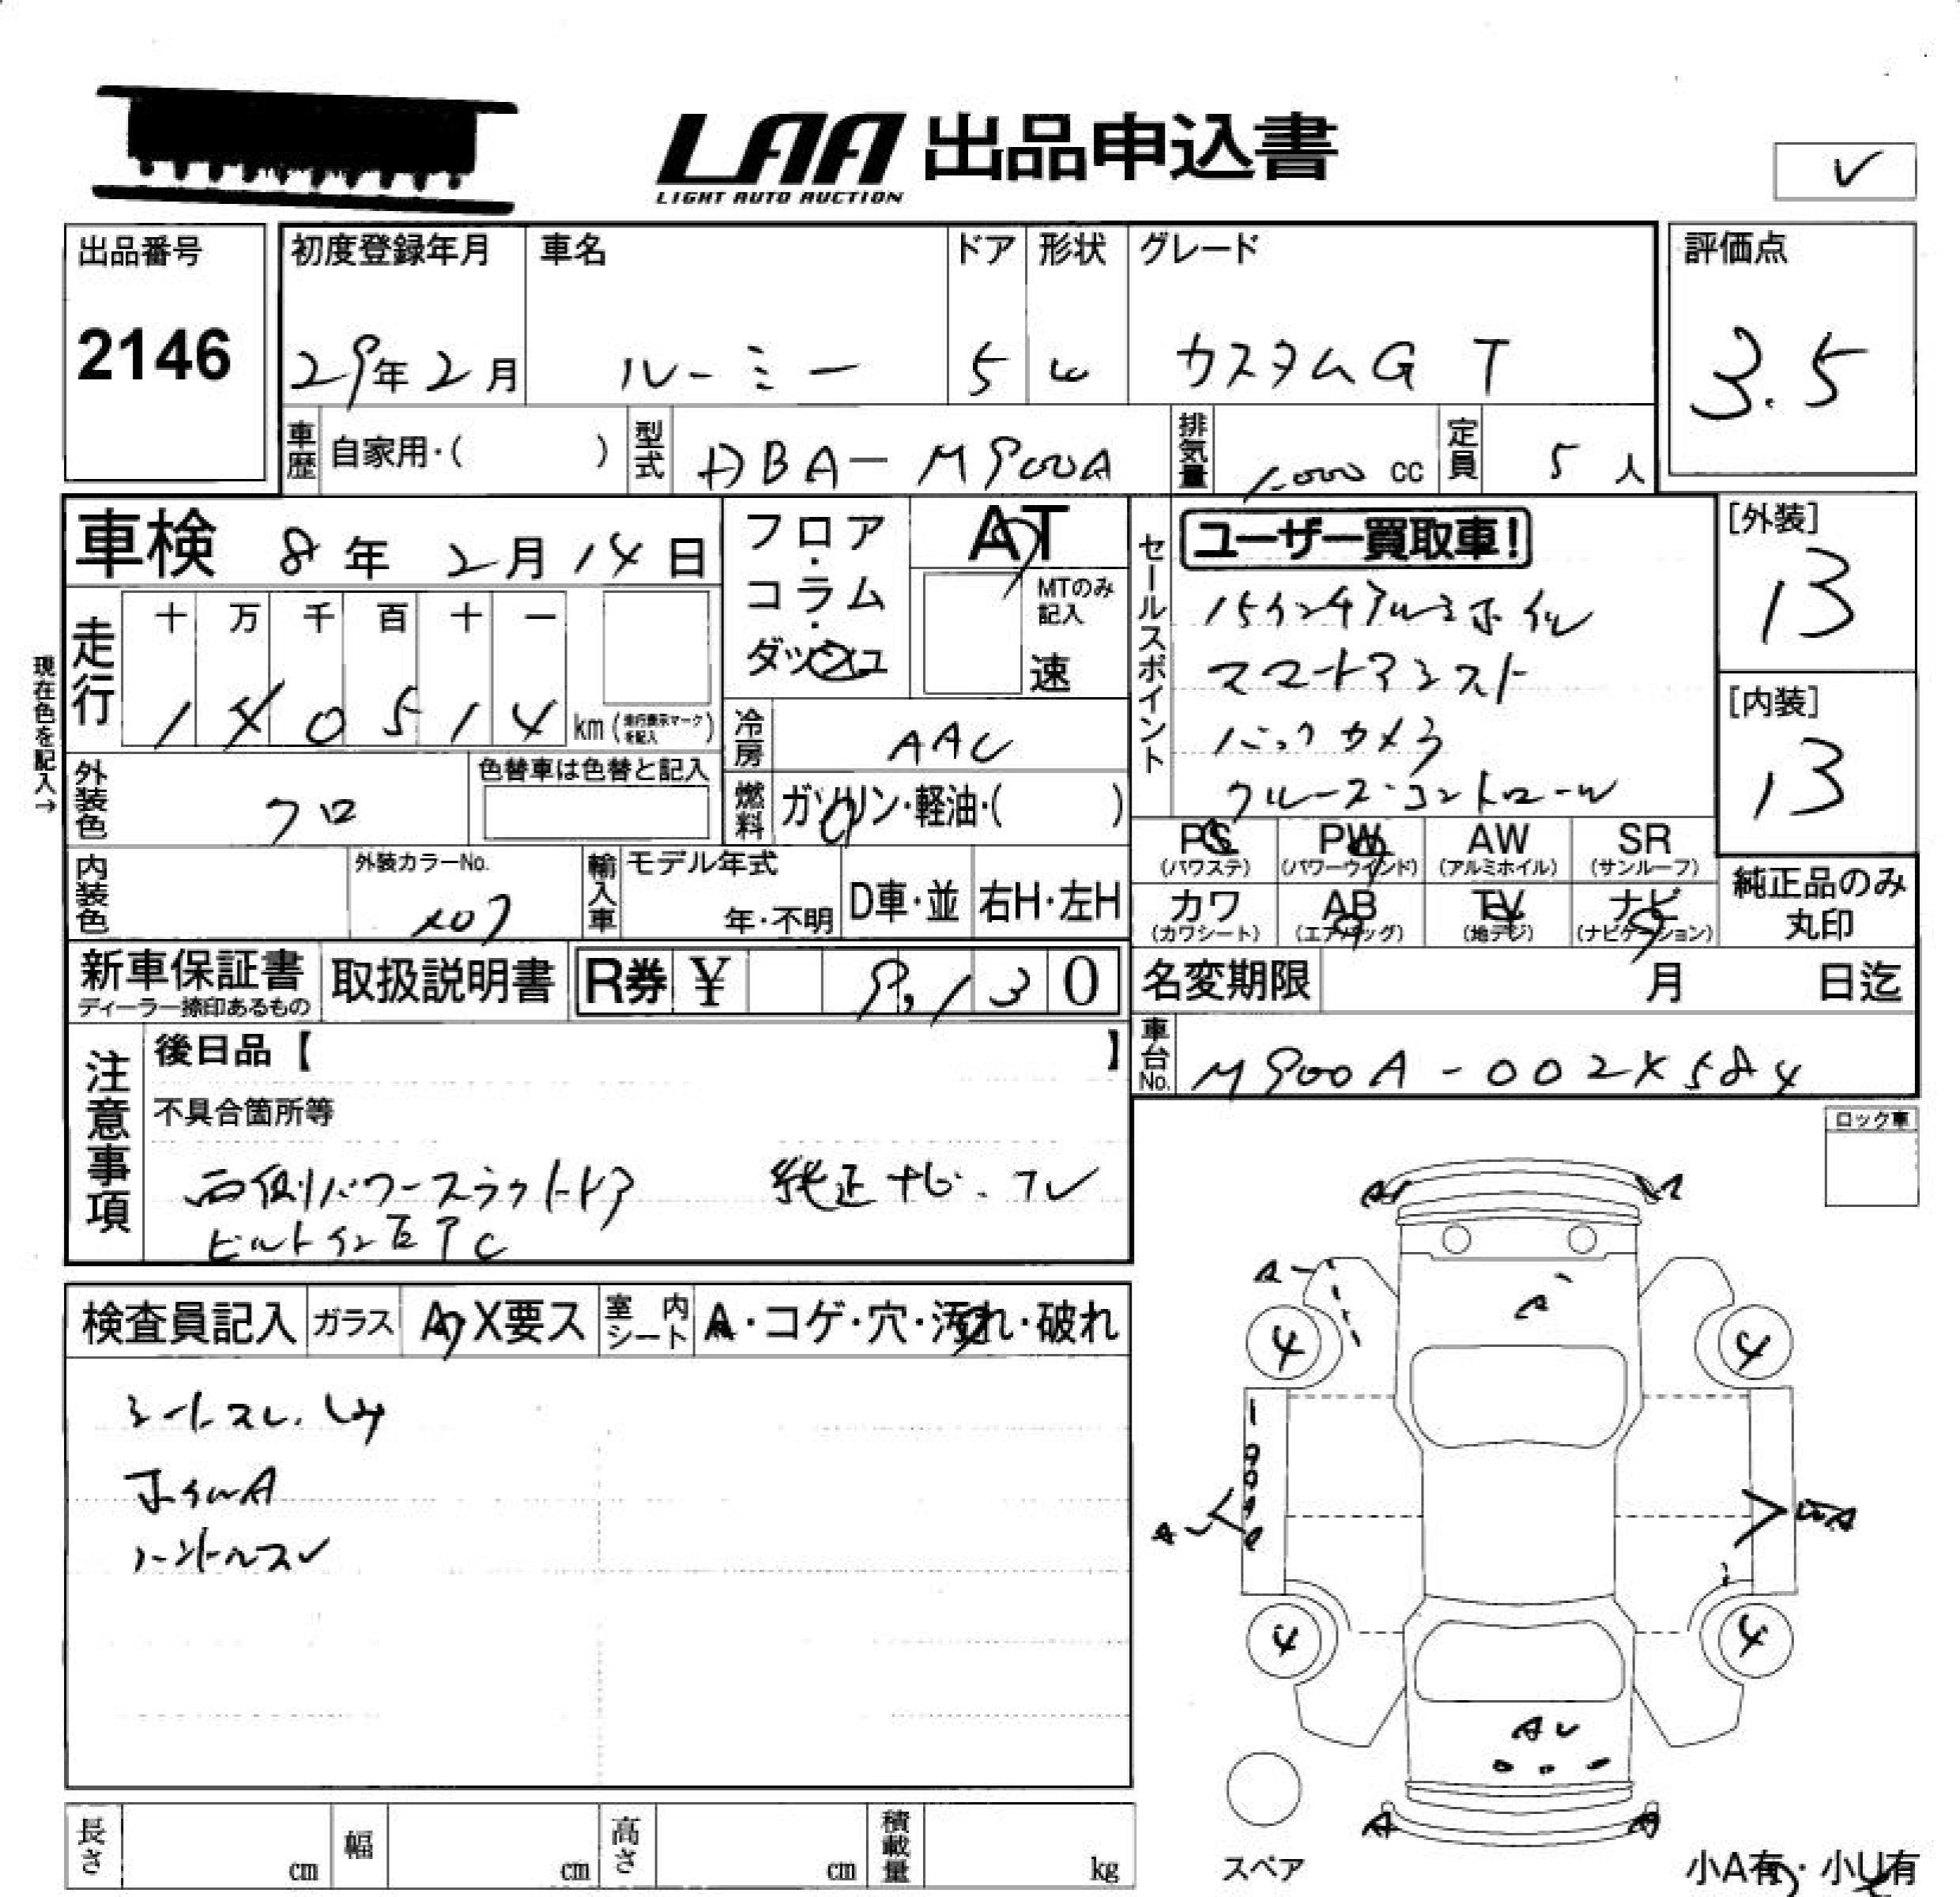 LAA 出品申込書
LIGHT AUTO AUCTION
✓
出品番号 初度登録年月 車名 ドア 形状 グレード 評価点
2146 29年2月 ルーミー 5 W カスタムG T 3.5
車歴 自家用・( ) 型式 DBA-M900A 排気量 1.000 cc 定員 5 人
車検 8年2月14日
フロア・コラム・ダッシュ
AT
MTのみ記入
速
セールスポイント
ユーザー買取車!
15インチアルミホイル
スマートアシスト
バックカメラ
クルーズ・コントロール
[外装]
13
[内装]
13
現在色を記入→
走行 十 万 千 百 十 一
1 4 0 5 1 4 km (走行表示マークを記入)
冷房 AAC
外装色 クロ 色替車は色替と記入
燃料 ガソリン・軽油・( )
PS (パワステ) PW (パワーウインド) AW (アルミホイル) SR (サンルーフ)
カワ (カワシート) AB (エアバッグ) TV (地デジ) ナビ (ナビゲーション)
純正品のみ丸印
内装色 外装カラーNo. X07 輸入車 モデル年式 年・不明 D車・並 右H・左H
新車保証書 ディーラー捺印あるもの 取扱説明書 R券 ¥ 9,130
名変期限 月 日迄
車台No. M900A-002X584
注意事項
後日品【 】
不具合箇所等
両側パワースライドドア 純正ナビ.TV
ビルトインETC
ロック車
検査員記入 ガラス A・X要ス 室内シート A・コゲ・穴・汚れ・破れ
シートスレ.シミ
ホイルA
ハンドルスレ
A A
A
A
4 4
A
4 4
AU
A A
スペア
小A有・小U有
長さ cm 幅 cm 高さ cm 積載量 kg